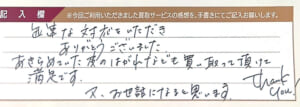 記入欄 ※今回ご利用いただきました買取サービスの感想を、手書きにてご記入お願いします。
迅速な対応をいただき
ありがとうございました。
あきらめていた本のはがれなども買い取って頂けて
満足です。
又、お世話になると思います
Thank you!